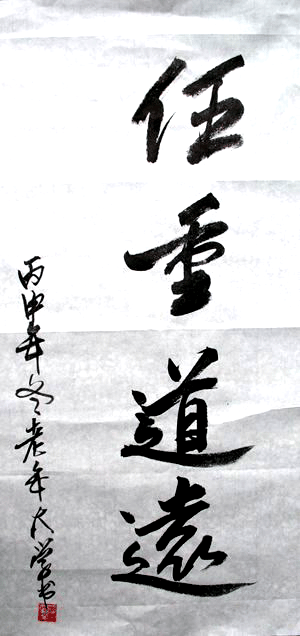 任重道遠
丙申年冬老年大学书